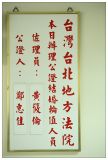 台灣台北地方法院
本日辦理公證結婚輪值人員
佐理員：黃媛倫
公證人：鄭惠佳